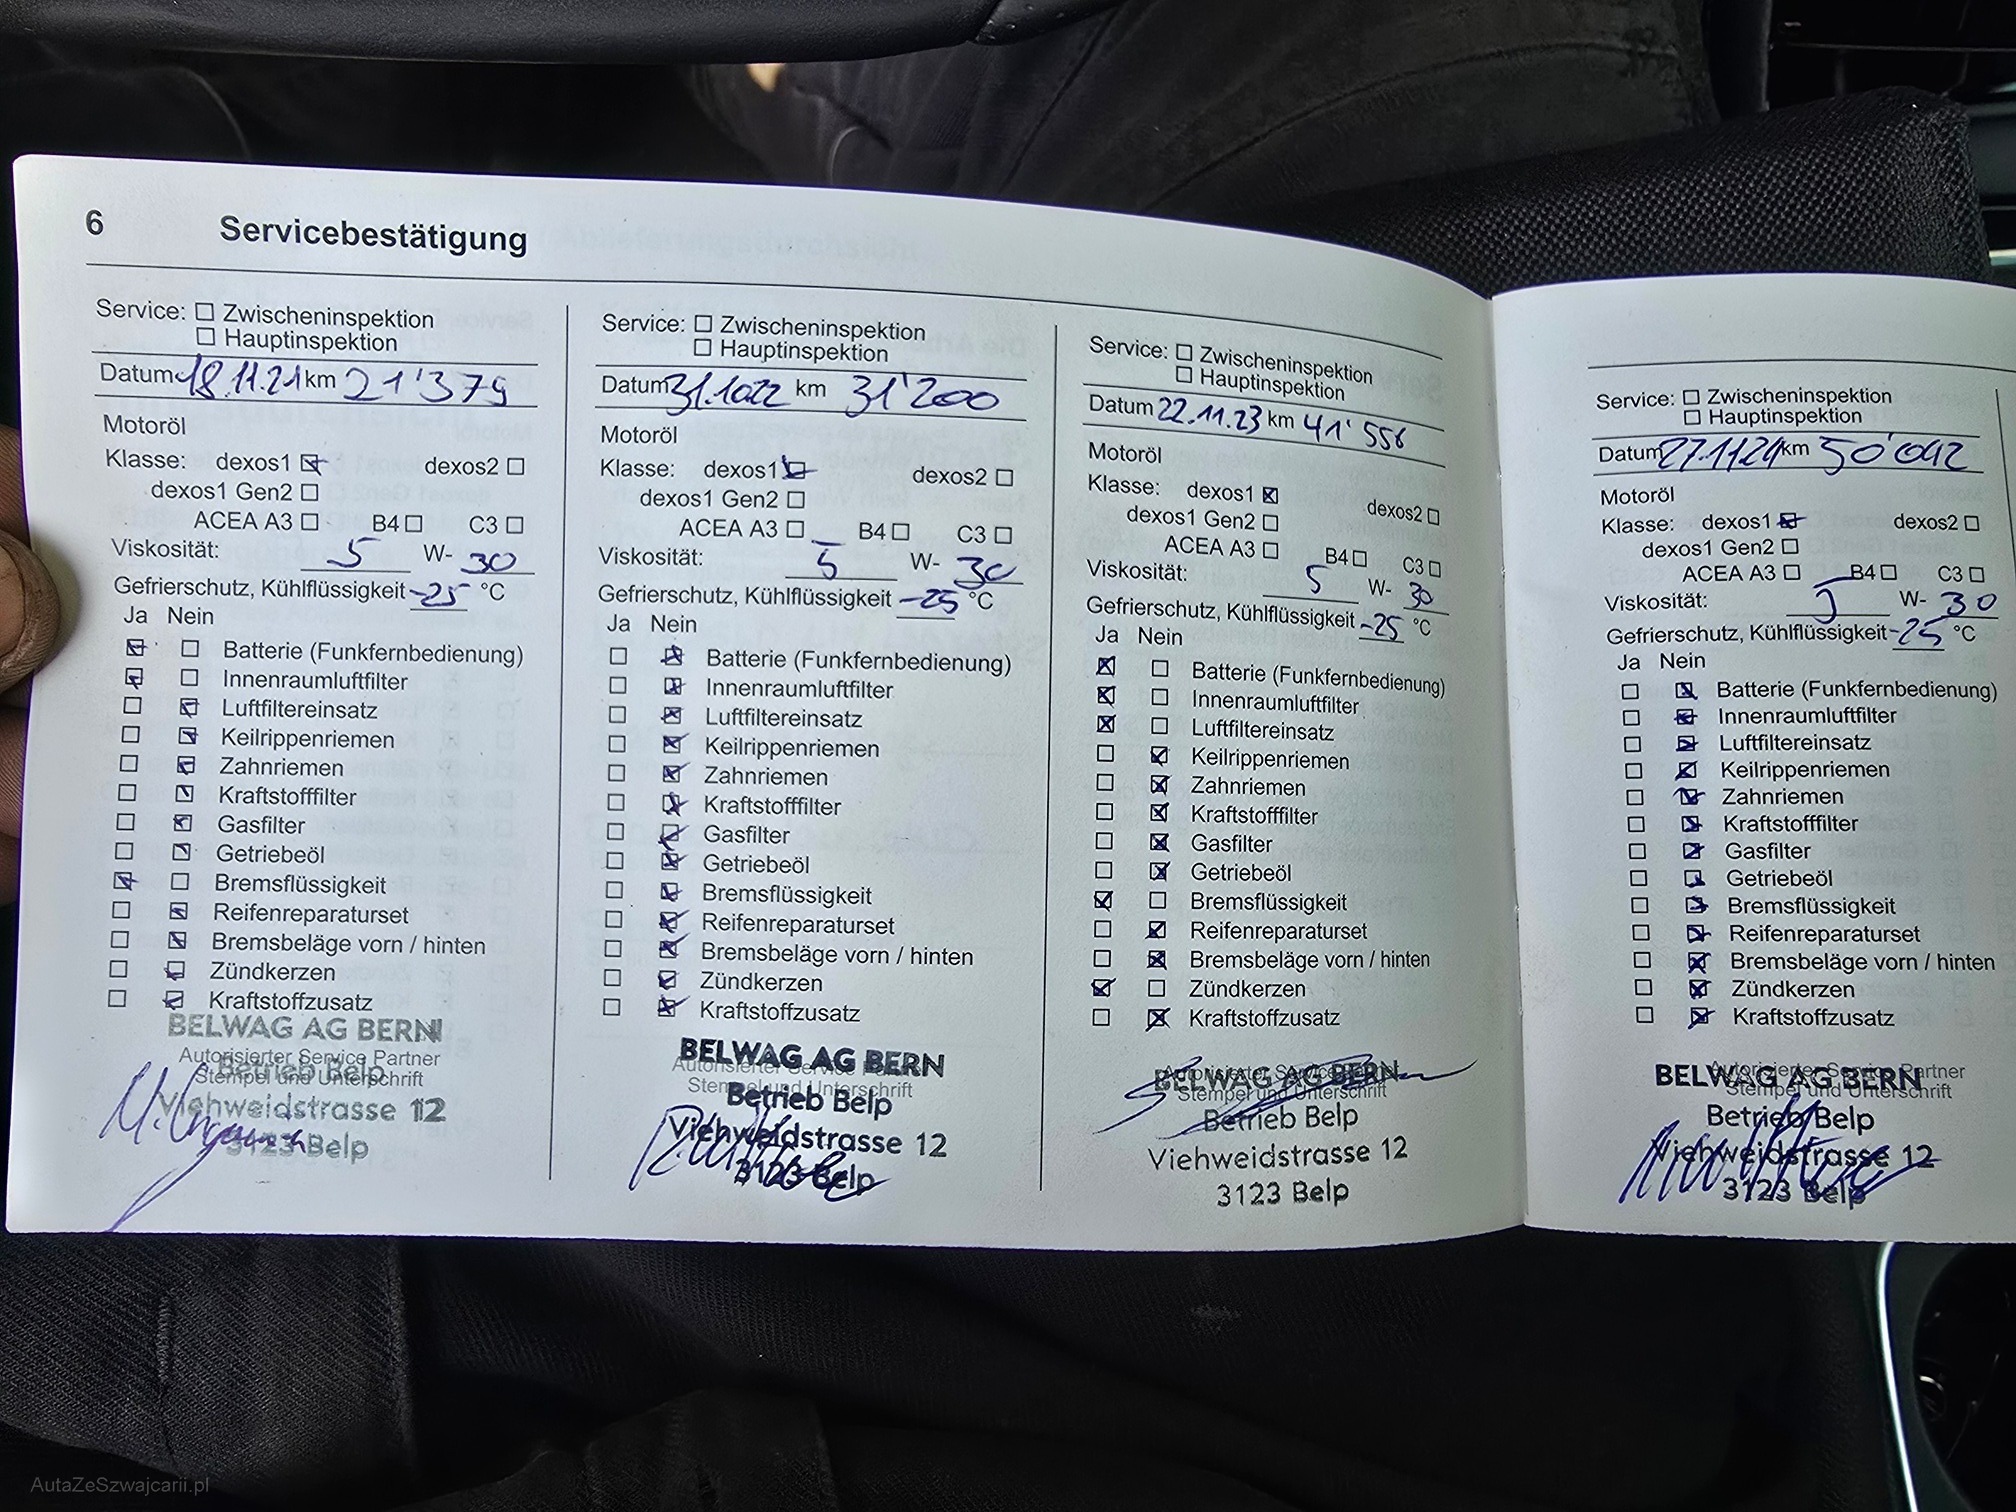 6 Servicebestätigung
Service: Zwischeninspektion
Hauptinspektion
Datum 18.11.21 km 21'379
Motoröl
Klasse: dexos1 dexos2
dexos1 Gen2
ACEA A3 B4 C3
Viskosität: 5 W- 30
Gefrierschutz, Kühlflüssigkeit -25 °C
Ja Nein
Batterie (Funkfernbedienung)
Innenraumluftfilter
Luftfiltereinsatz
Keilrippenriemen
Zahnriemen
Kraftstofffilter
Gasfilter
Getriebeöl
Bremsflüssigkeit
Reifenreparaturset
Bremsbeläge vorn / hinten
Zündkerzen
Kraftstoffzusatz
BELWAG AG BERN
Autorisierter Service Partner
Betrieb Belp
Stempel und Unterschrift
Viehweidstrasse 12
3123 Belp
Service: Zwischeninspektion
Hauptinspektion
Datum 31.10.22 km 31'200
Motoröl
Klasse: dexos1 dexos2
dexos1 Gen2
ACEA A3 B4 C3
Viskosität: 5 W- 30
Gefrierschutz, Kühlflüssigkeit -25 °C
Ja Nein
Batterie (Funkfernbedienung)
Innenraumluftfilter
Luftfiltereinsatz
Keilrippenriemen
Zahnriemen
Kraftstofffilter
Gasfilter
Getriebeöl
Bremsflüssigkeit
Reifenreparaturset
Bremsbeläge vorn / hinten
Zündkerzen
Kraftstoffzusatz
BELWAG AG BERN
Autorisierter Service Partner
Stempel und Unterschrift
Betrieb Belp
Viehweidstrasse 12
3123 Belp
Service: Zwischeninspektion
Hauptinspektion
Datum 22.11.23 km 41'556
Motoröl
Klasse: dexos1 dexos2
dexos1 Gen2
ACEA A3 B4 C3
Viskosität: 5 W- 30
Gefrierschutz, Kühlflüssigkeit -25 °C
Ja Nein
Batterie (Funkfernbedienung)
Innenraumluftfilter
Luftfiltereinsatz
Keilrippenriemen
Zahnriemen
Kraftstofffilter
Gasfilter
Getriebeöl
Bremsflüssigkeit
Reifenreparaturset
Bremsbeläge vorn / hinten
Zündkerzen
Kraftstoffzusatz
Autorisierter Service Partner
BELWAG AG BERN
Stempel und Unterschrift
Betrieb Belp
Viehweidstrasse 12
3123 Belp
Service: Zwischeninspektion
Hauptinspektion
Datum 27.11.24 km 50'042
Motoröl
Klasse: dexos1 dexos2
dexos1 Gen2
ACEA A3 B4 C3
Viskosität: 5 W- 30
Gefrierschutz, Kühlflüssigkeit -25 °C
Ja Nein
Batterie (Funkfernbedienung)
Innenraumluftfilter
Luftfiltereinsatz
Keilrippenriemen
Zahnriemen
Kraftstofffilter
Gasfilter
Getriebeöl
Bremsflüssigkeit
Reifenreparaturset
Bremsbeläge vorn / hinten
Zündkerzen
Kraftstoffzusatz
Autorisierter Service Partner
BELWAG AG BERN
Stempel und Unterschrift
Betrieb Belp
Viehweidstrasse 12
3123 Belp
AutaZeSzwajcarii.pl